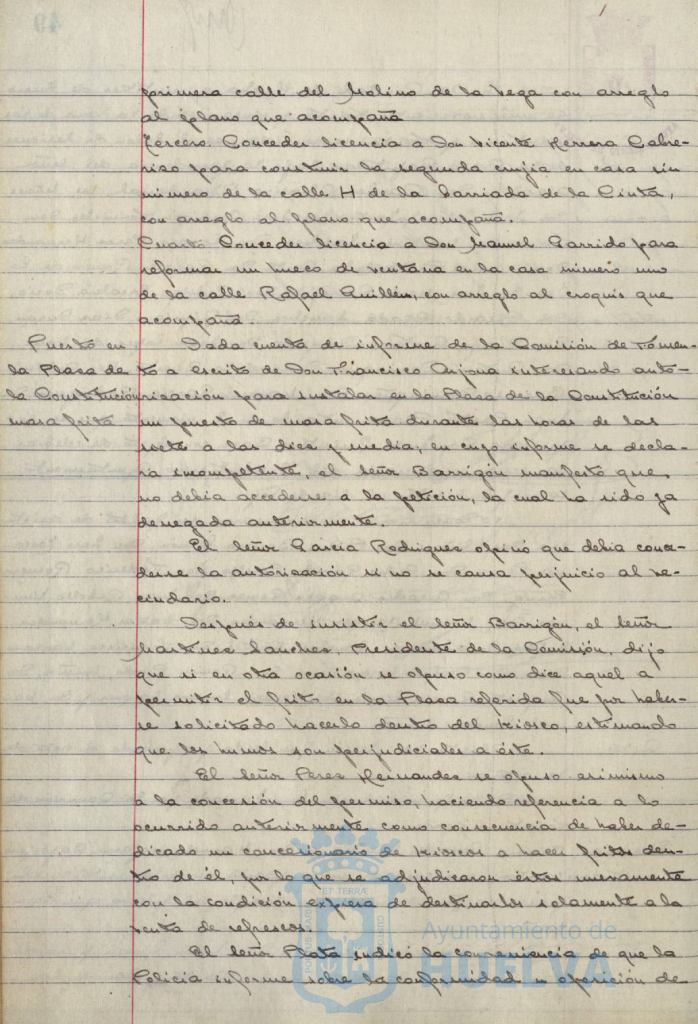 49
primera calle del Molino de la Vega con arreglo
al plano que acompaña
Tercero. Conceder licencia a Don Vicente Herrera Cabre-
rizo para construir la segunda crujia en casa sin
número de la calle H de la barriada de la Cinta,
con arreglo al plano que acompaña.
Cuarto Conceder licencia a Don Manuel Garrido para
reformar un hueco de ventana en la casa número uno
de la calle Rafael Guillén, con arreglo al croquis que
acompaña.
Puesto en
la Plaza de
la Constitución
masa frita
Dada cuenta de informe de la Comisión de Fomen-
to a escrito de Don Francisco Arjona interesando auto-
rización para instalar en la Plaza de la Constitución
un puesto de masa frita durante las horas de las
siete a las diez y media, en cuyo informe se decla-
ra incompetente, el señor Barrigón manifestó que
no debia accederse a la petición, la cual ha sido ya
denegada anteriormente.
El señor Garcia Rodriguez opinó que debia conce-
derse la autorización si no se causa perjuicio al ve-
cindario.
Después de insistir el señor Barrigón, el señor
Martinez Sanchez, Presidente de la Comisión, dijo
que si en otra ocasión se opuso como dice aquel a
permitir el frito en la Plaza referida fue por haber-
se solicitado hacerlo dentro del kiosco, estimando
que los humos son perjudiciales a éste.
El señor Perez Hernandez se opuso asimismo
a la concesión del permiso, haciendo referencia a lo
ocurrido anteriormente como consecuencia de haber de-
dicado un concesionario de kioscos a hacer fritos den-
tro de él, por lo que se adjudicaron éstos nuevamente
con la condición expresa de destinarlos solamente a la
venta de refrescos.
El señor Plata indicó la conveniencia de que la
Policia informe sobre la conformidad u oposición de
Ayuntamiento de
HUELVA